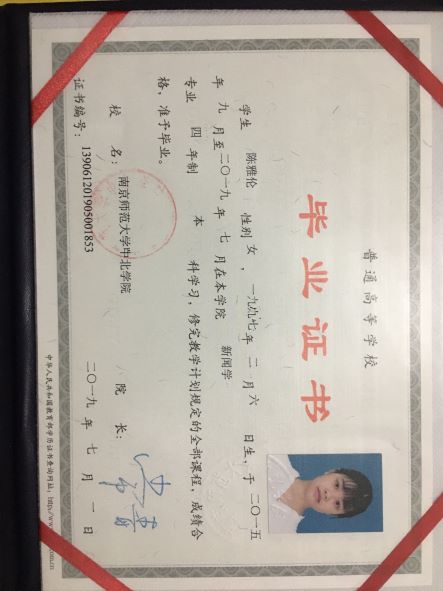 普通高等学校
毕业证书
学生 陈雅伦 性别 女，一九九七年 二 月 六 日生，于 二〇一五
年 九 月至二〇一九年 七 月在本学院 新闻学
专业 四 年制 本 科学习，修完教学计划规定的全部课程，成绩合
格，准予毕业。
校 名：南京师范大学中北学院 院 长：
证书编号：139061201905001853 二〇一九 年 七 月 一 日
中华人民共和国教育部学历证书查询网址：http://www.